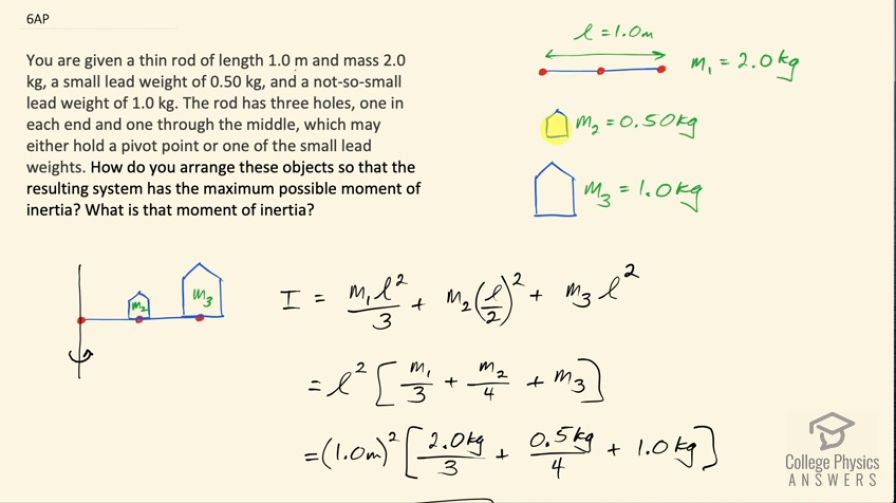 6AP
You are given a thin rod of length 1.0 m and mass 2.0
kg, a small lead weight of 0.50 kg, and a not-so-small
lead weight of 1.0 kg. The rod has three holes, one in
each end and one through the middle, which may
either hold a pivot point or one of the small lead
weights. How do you arrange these objects so that the
resulting system has the maximum possible moment of
inertia? What is that moment of inertia?
l = 1.0m
m₁ = 2.0kg
m₂ = 0.50kg
m₃ = 1.0kg
m₂
m₃
I = m₁l²/3 + m₂(l/2)² + m₃l²
= l² [m₁/3 + m₂/4 + m₃]
= (1.0m)² [2.0kg/3 + 0.5kg/4 + 1.0kg]
College Physics
ANSWERS